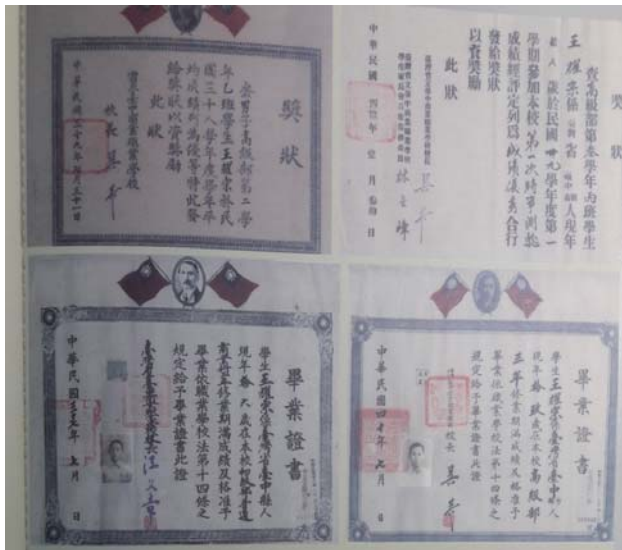 獎狀
查男子高級部第二學
年乙班學生王耀宗於民
國三十八學年度學年平
均成績列為優等特此發
給獎狀以資獎勵
此狀
職業學校
校長 吳
中華民國三十九年 月三十一日
獎狀
查高級部第叁學年丙班學生
王耀宗係 省 人現年
歲於民國 九學年度第一
學期參加本校第一次時事測驗
成績經評定列為成績優秀合行
發給獎狀
以資獎勵
此狀
臺灣省立臺中商業職業學校校長
中華民國 年 壹 月 日
畢業證書
學生王耀宗係臺灣省臺中縣人
現年拾六歲在本校初級部
修業期滿成績及格准予
畢業依職業學校法第十四條之
規定給予畢業證書此證
中華民國 年 七月 日
畢業證書
學生王耀宗係臺灣省臺中縣人
現年拾玖歲在本校高級部
三年修業期滿成績及格准予
畢業依職業學校法第十四條之
規定給予畢業證書此證
校長 吳
中華民國四十年 七月 日